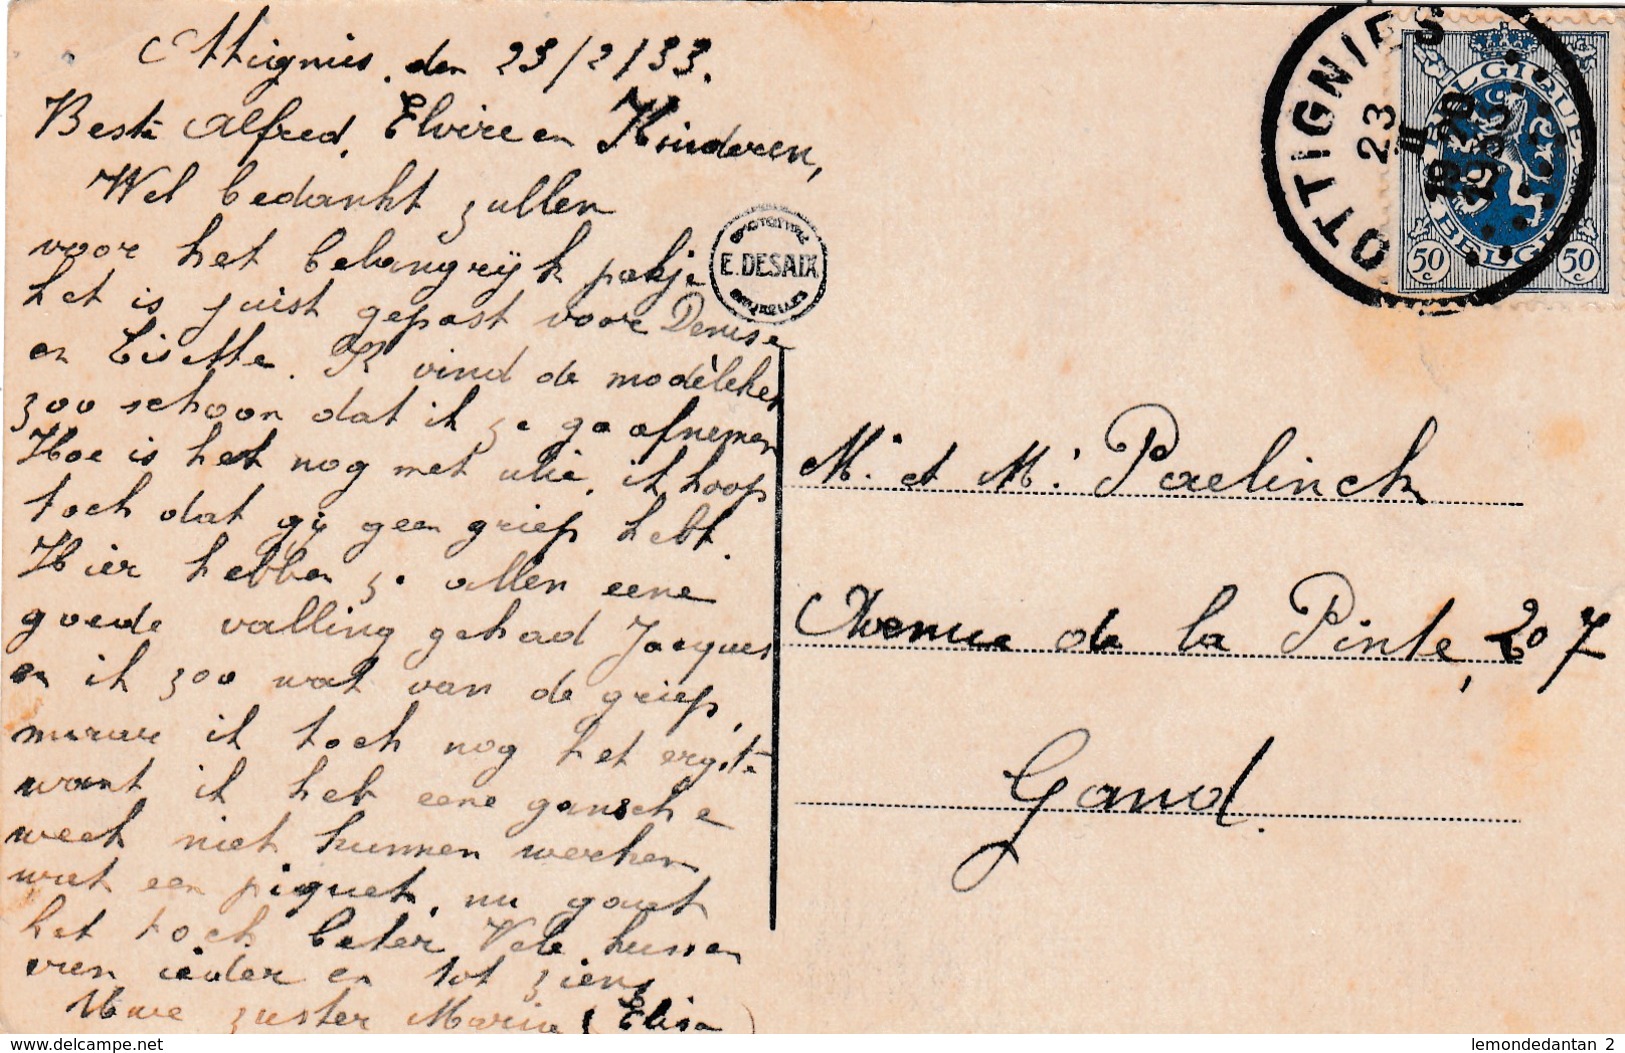 Ottignies, den 23/2/33.
Beste Alfred, Elvire en Kinderen,
Wel bedankt zullen
voor het belangrijk pakje
het is juist gepast voor Denise
en Lisette. Ik vind de modèleken
zoo schoon dat ik ze ga afnemen
Hoe is het nog met ulie, ik hoop
toch dat gij geen griep hebt.
Hier hebben ze allen eene
goede valling gehad Jacques
en ik zoo wat van de griep,
maar ik toch nog het ergste
want ik heb eene gansche
week niet kunnen werken
wat een piquet, nu gaat
het toch beter. Vele kussen
van ieder en tot ziens
Uwe zuster Maria (Elisa)
E. DESAIX
BRUXELLES
OTTIGNIES
23
II
19-20
1933
BELGIQUE
BELGIË
50 c
50 c
M. et M. Paelinck
Avenue de la Pinte, 207
Gand.
lemondedantan-2
www.delcampe.net